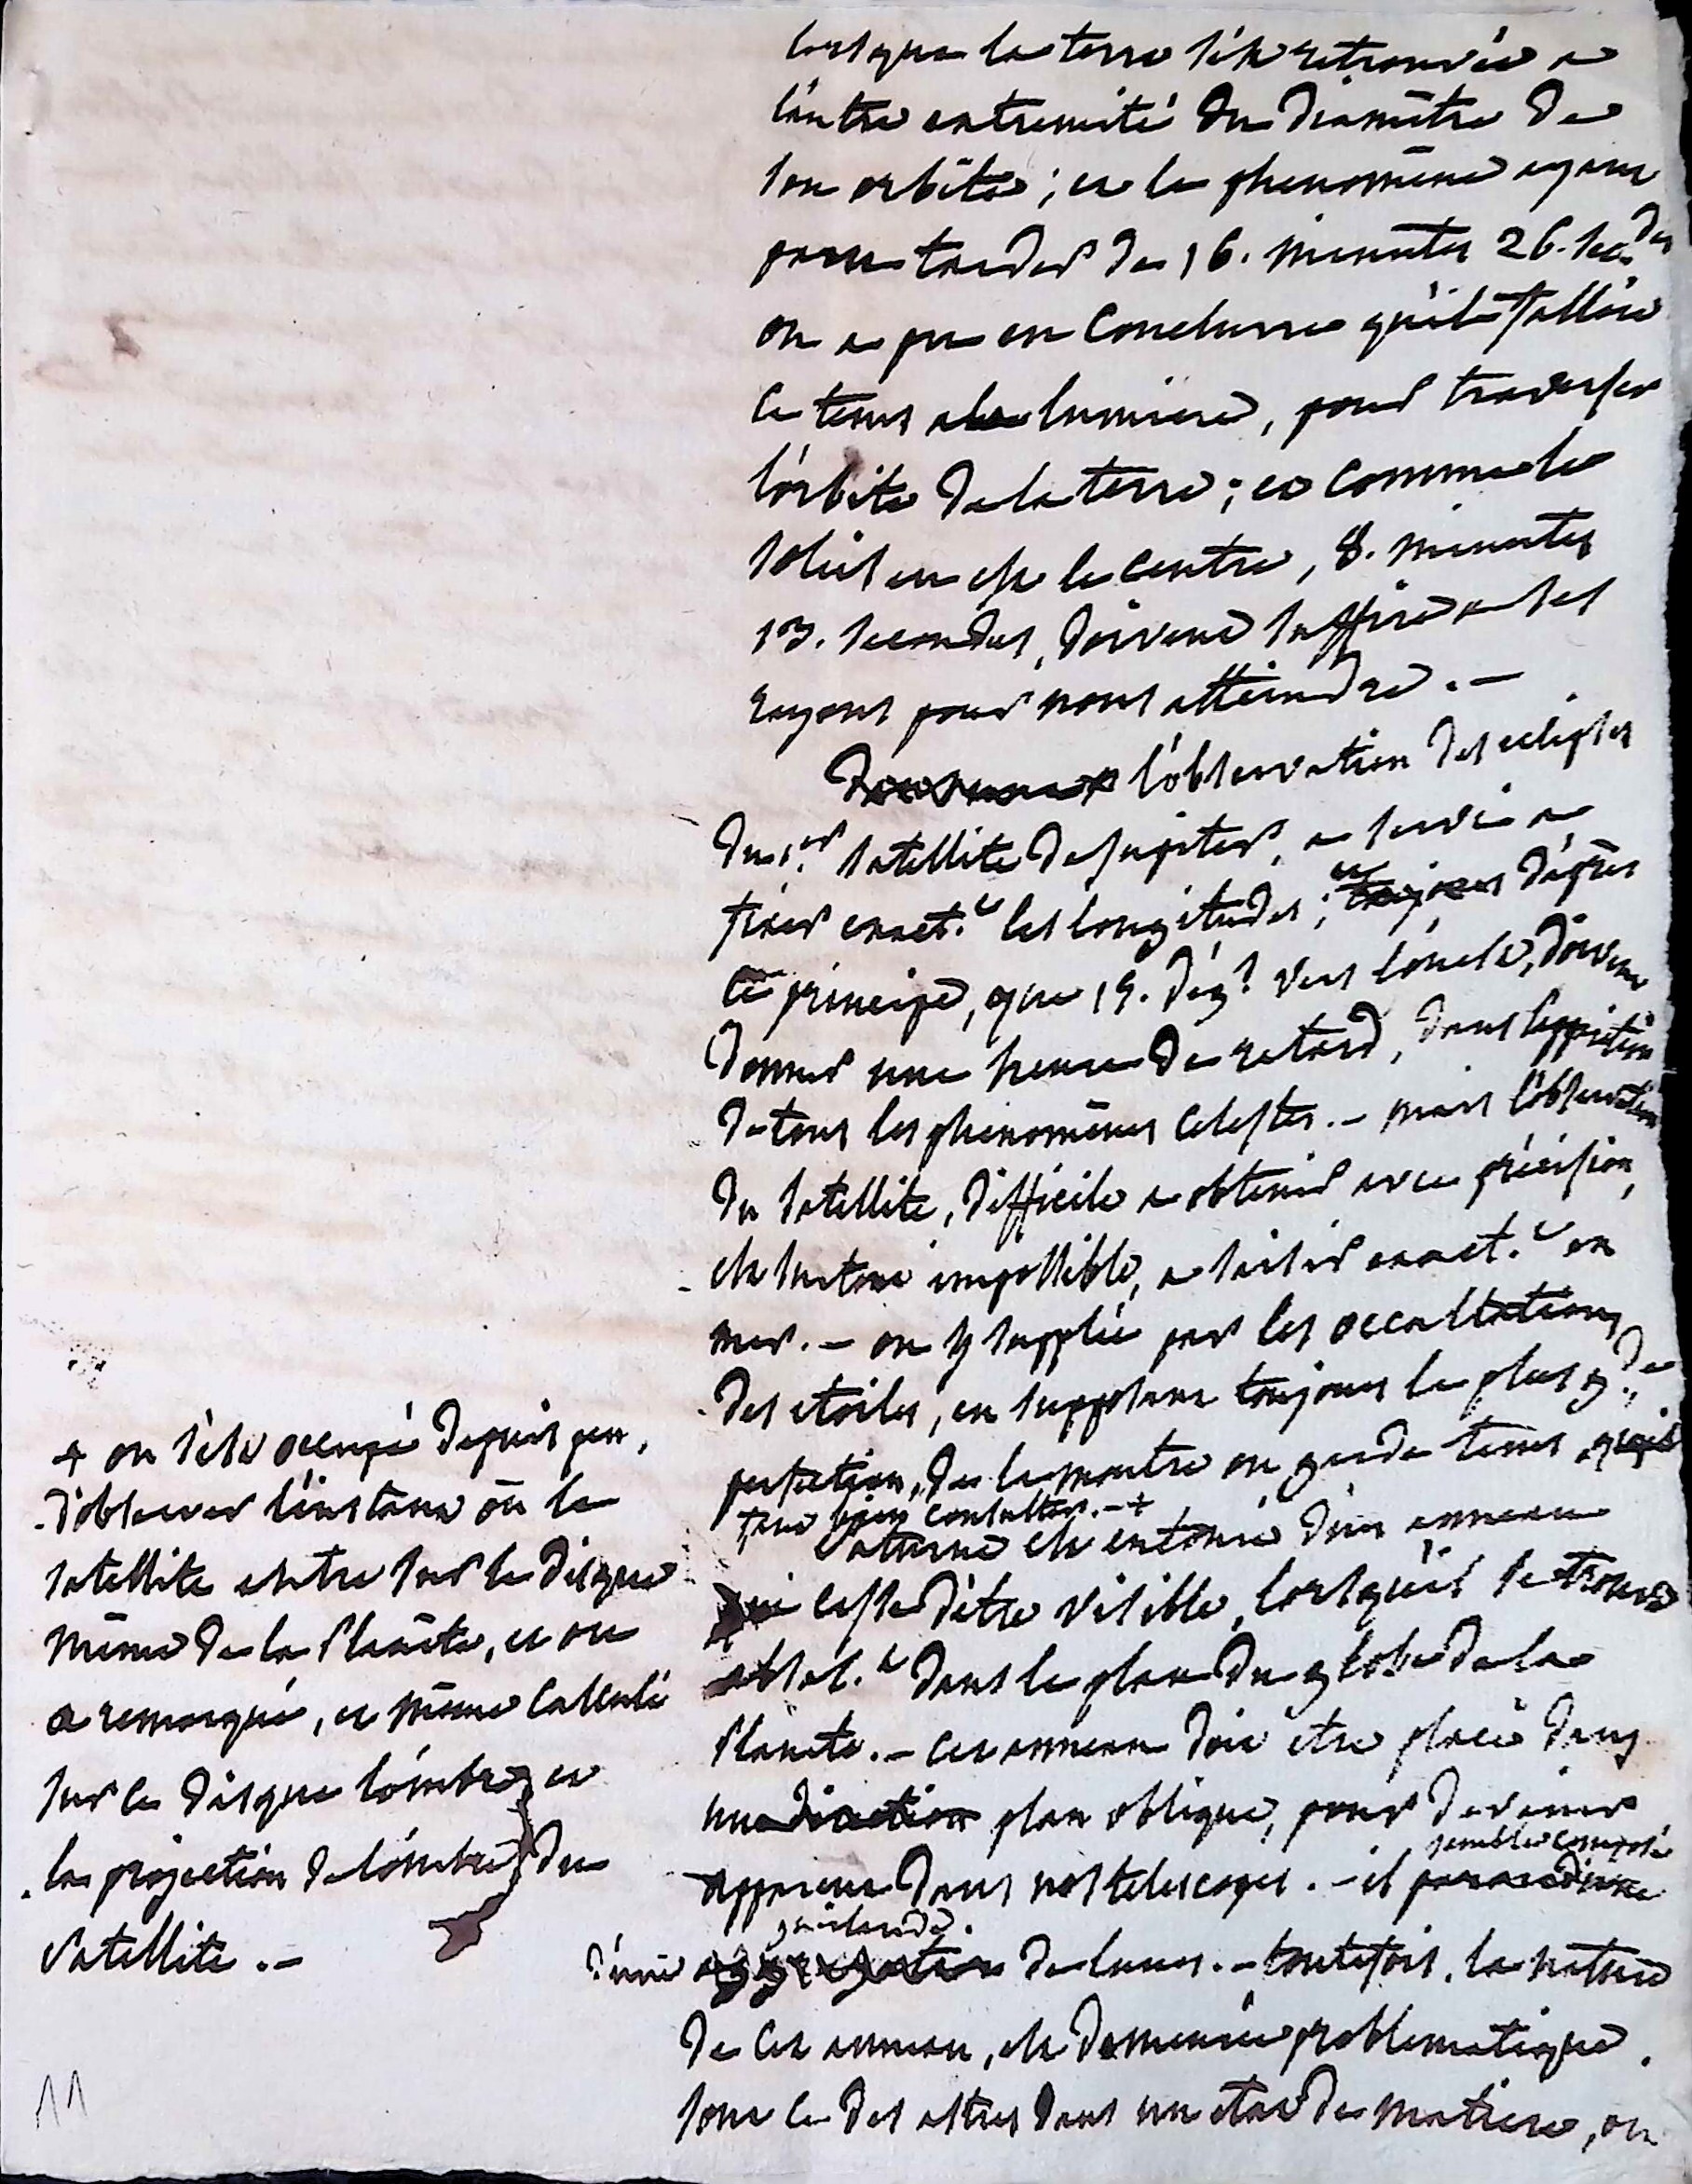 lorsque la terre s'est retrouvée a
l'autre extremité du diamêtre de
son orbite ; et le phenomène ayant
paru tarder de 16. minutes 26. sec.des
on a pu en conclurre qu'il falloit
ce tems a la lumiere, pour traverser
l'orbite de la terre ; et comme le
soleil en est le centre, 8. minutes
13. secondes, doivent suffire a ses
rayons pour nous atteindre. —
l'observation des eclipses
du 1.er satellite de Jupiter, a servi a
fixer exact.t les longitudes ; et toujours d'après
ce principe, que 15. dég.s vers l'ouest, doivent
donner une heure de retard, dans l'apparition
de tous les phenomènes celestes. — mais l'observation
du satellite, difficile a obtenir avec précision,
est surtout impossible, a saisir exact.t en
mer. — on y supplée par les occultations
des etoiles, en supposant toujours la plus g.de
perfection, de la montre ou garde tems qu'il
faut bien consulter. — +
Saturne est entouré d'un anneau
qui cesse d'être visible, lorsqu'il se trouve
absol.t dans le plan du globe de la
Planete. — cet anneau doit etre placé dans
un direction plan oblique, pour devenir
semble composé
apparent dans nos telescopes. — il parait d'une
guirlande.
d'une aggregation de lunes. — toutefois, la nature
de cet anneau, est demeurée problematique.
sont ce des astres dans un etat de matiere, ou
+ on s'est occupé depuis peu,
d'observer l'instant où le
satellite entre sur le disque
même de la Planète, et on
a remarqué, et même calculé
sur ce disque l'ombre et
la projection de l'ombre du
Satellite. —
11